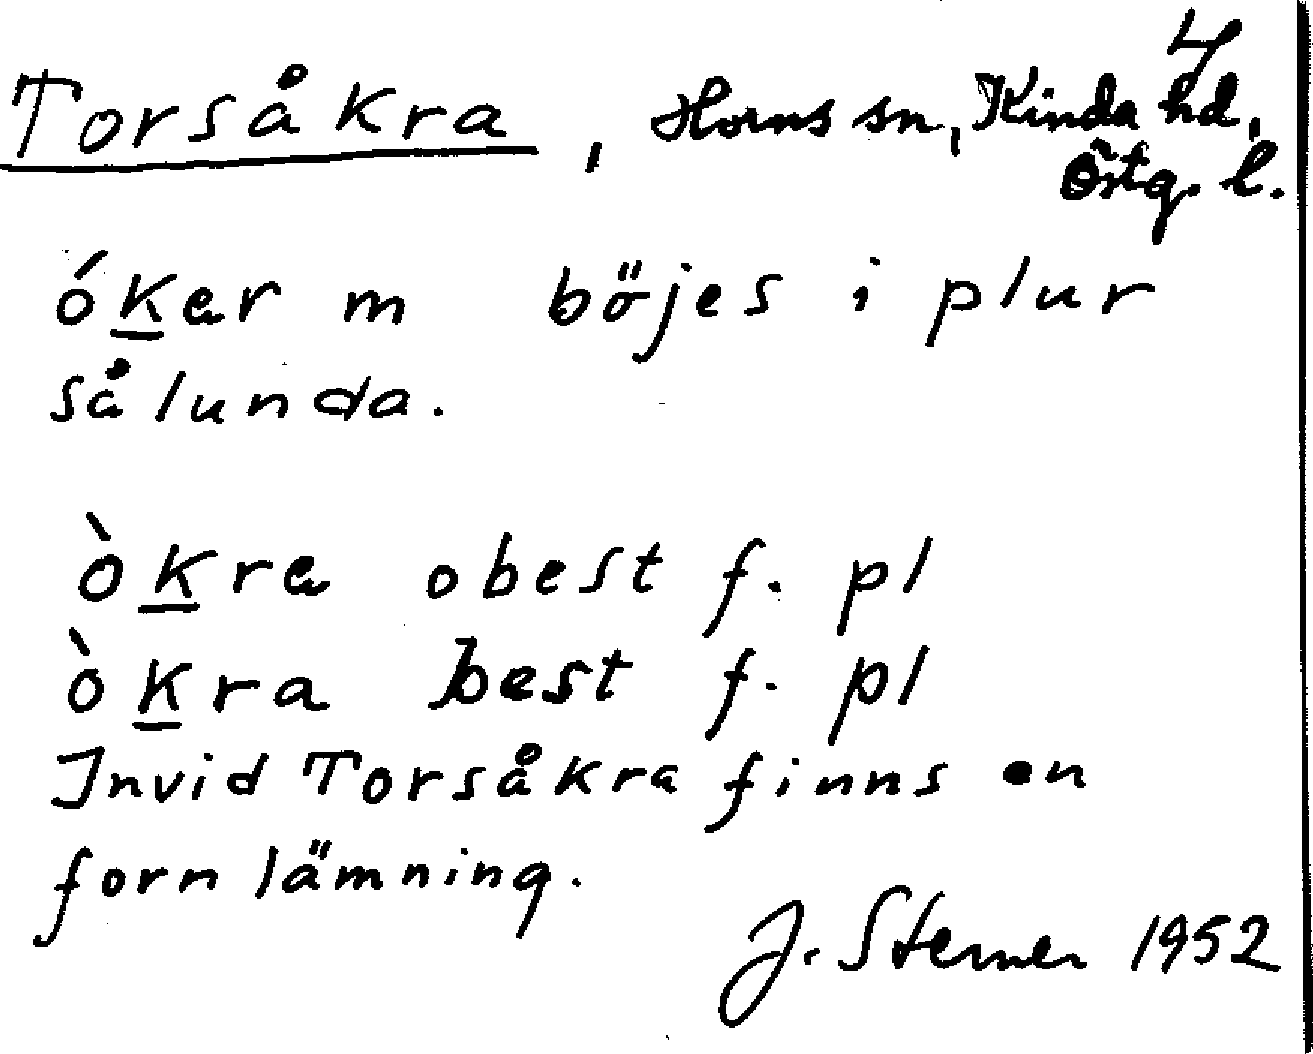 4
Torsåkra, Horns sn, Kinda hd,
Östg. l.
óker m böjes i plur
sålunda.
òkra obest f. pl
òkra best f. pl
Invid Torsåkra finns en
fornlämning.
J. Sterner 1952